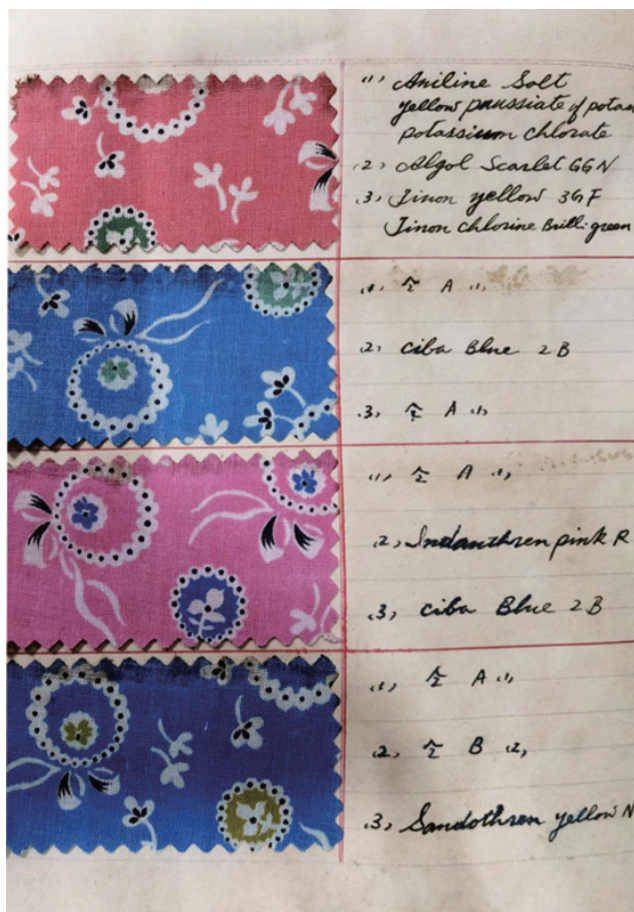 (1) Aniline Salt
yellow prussiate of potas
potassium chlorate
(2) Algol Scarlet GGN
(3) Tinon yellow 3GF
Tinon chlorine Brill: green
(1) 仝 A (1)
(2) Ciba Blue 2B
(3) 仝 A (1)
(1) 仝 A (1)
(2) Indanthren pink R
(3) Ciba Blue 2B
(1) 仝 A (1)
(2) 仝 B (2)
(3) Sandothren yellow N